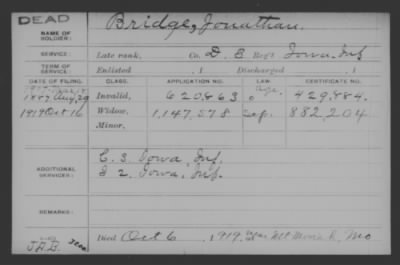 DEAD
Bridge, Jonathan.
NAME OF SOLDIER:
SERVICE:
Late rank, Co. D, 8 Reg't Iowa Inf
TERM OF SERVICE:
Enlisted , 1 Discharged , 1
DATE OF FILING. CLASS. APPLICATION NO. LAW. CERTIFICATE NO.
1887 Aug 29 Invalid, 620,863 429,884.
1919 Oct 16 Widow, 1,147,578 882,204
Minor,
ADDITIONAL SERVICES:
C. 3. Iowa, Inf.
I 2. Iowa, Inf.
REMARKS:
Died Oct 6, 1919, near Mt Moriah, Mo